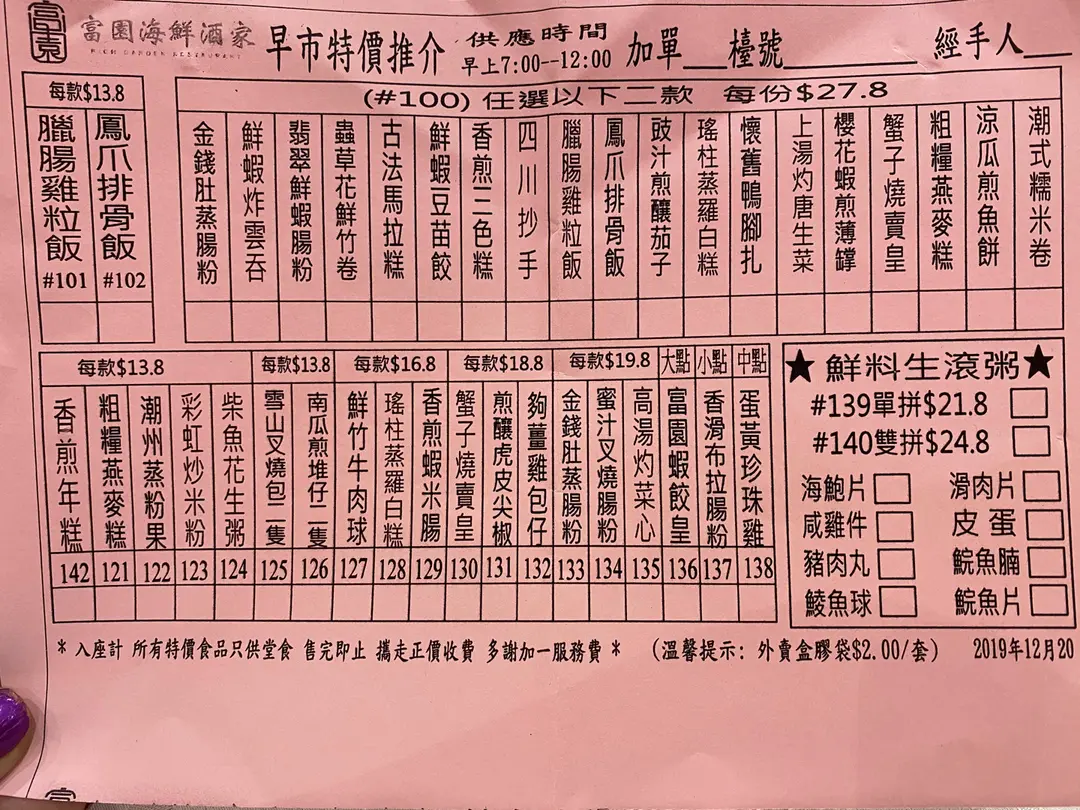 富園海鮮酒家
RICH GARDEN RESTAURANT
早市特價推介
供應時間
早上7:00--12:00
加單___檯號______
經手人___
每款$13.8
臘腸雞粒飯 #101
鳳爪排骨飯 #102
(#100) 任選以下二款 每份$27.8
金錢肚蒸腸粉
鮮蝦炸雲吞
翡翠鮮蝦腸粉
蟲草花鮮竹卷
古法馬拉糕
鮮蝦豆苗餃
香煎二色糕
四川抄手
臘腸雞粒飯
鳳爪排骨飯
豉汁煎釀茄子
瑤柱蒸羅白糕
懷舊鴨腳扎
上湯灼唐生菜
櫻花蝦煎薄罉
蟹子燒賣皇
粗糧燕麥糕
涼瓜煎魚餅
潮式糯米卷
每款$13.8
香煎年糕 142
粗糧燕麥糕 121
潮州蒸粉果 122
彩虹炒米粉 123
柴魚花生粥 124
每款$13.8
雪山叉燒包二隻 125
南瓜煎堆仔二隻 126
每款$16.8
鮮竹牛肉球 127
瑤柱蒸羅白糕 128
香煎蝦米腸 129
每款$18.8
蟹子燒賣皇 130
煎釀虎皮尖椒 131
夠薑雞包仔 132
每款$19.8
金錢肚蒸腸粉 133
蜜汁叉燒腸粉 134
高湯灼菜心 135
大點
富園蝦餃皇 136
小點
香滑布拉腸粉 137
中點
蛋黃珍珠雞 138
★鮮料生滾粥★
#139單拼$21.8
#140雙拼$24.8
海鮑片 滑肉片
咸雞件 皮蛋
豬肉丸 鯇魚腩
鯪魚球 鯇魚片
* 入座計 所有特價食品只供堂食 售完即止 攜走正價收費 多謝加一服務費 * (溫馨提示: 外賣盒膠袋$2.00/套) 2019年12月20